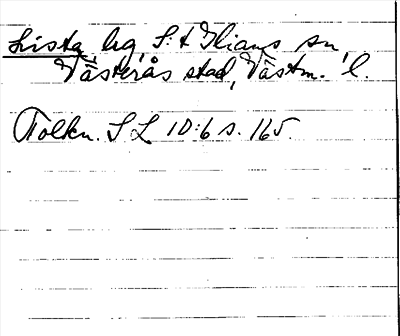 Lista, hg, S:t Ilians sn,
Västerås stad, Västm. l.
Tolkn. SL 10:6 s. 165.